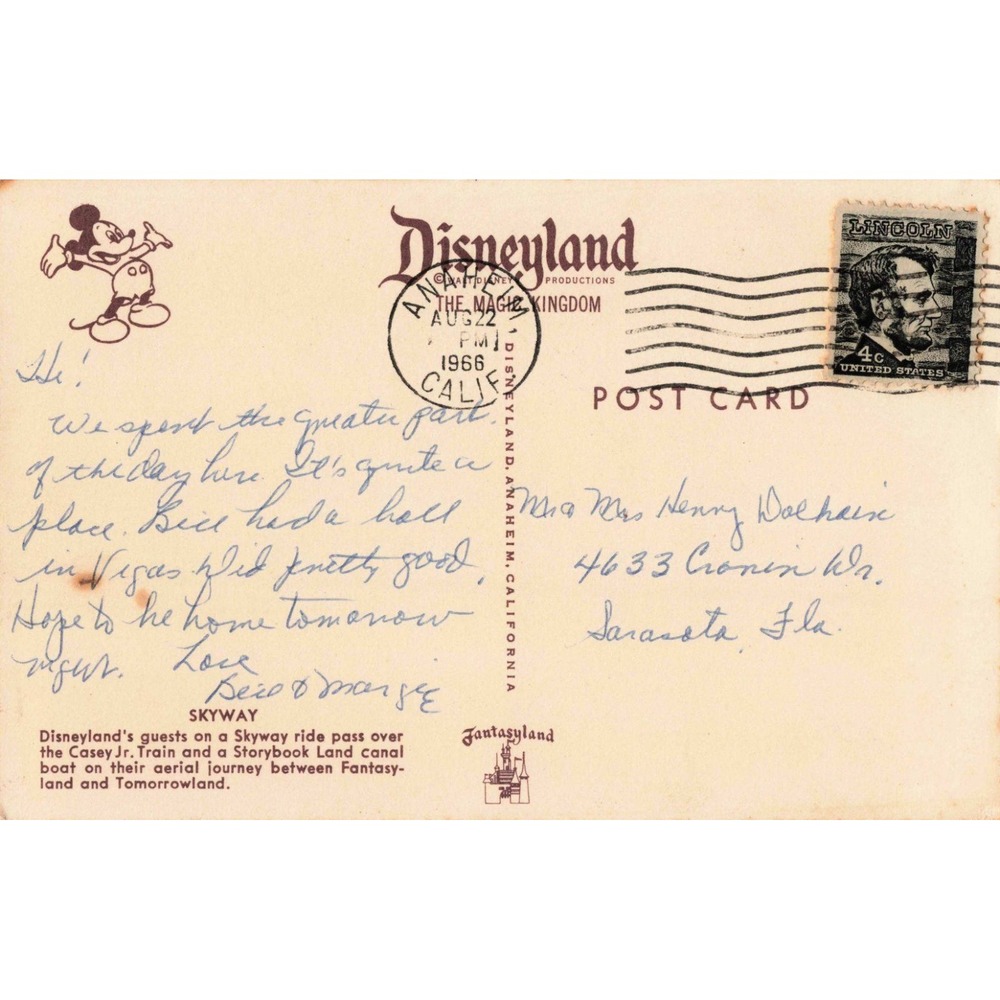 Disneyland
© WALT DISNEY PRODUCTIONS
THE MAGIC KINGDOM
ANAHEIM
AUG 22
PM
1966
CALIF.
LINCOLN
4c
UNITED STATES
POST CARD
Hi!
We spent the greater part
of the day here. It's quite a
place. Bill had a ball
in Vegas & did pretty good.
Hope to be home tomorrow
night. Love
Bill & Margie
DISNEYLAND, ANAHEIM, CALIFORNIA
Mr & Mrs Henry
4633 Cronin Dr.
Sarasota, Fla.
SKYWAY
Disneyland's guests on a Skyway ride pass over
the Casey Jr. Train and a Storybook Land canal
boat on their aerial journey between Fantasy-
land and Tomorrowland.
Fantasyland